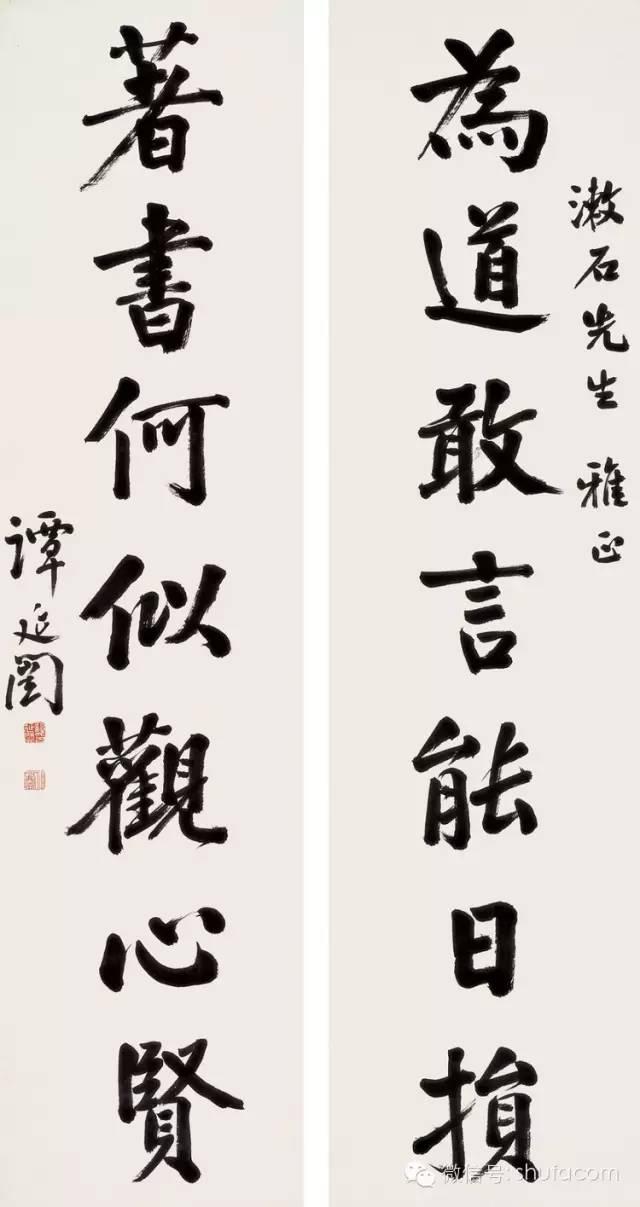 漱石先生 雅正
為道敢言能日損
著書何似觀心賢
譚延闓
微信号: shufacom